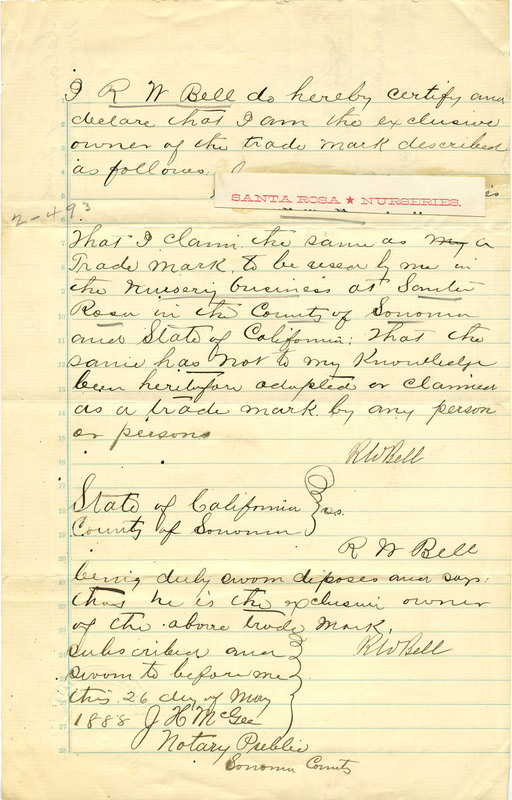 I R W Bell do hereby certify and
declare that I am the exclusive
owner of the trade mark described
as follows.
SANTA ROSA ★ NURSERIES.
2-493
That I claim the same as my a
Trade mark, to be used by me in
the nursery business at Santa
Rosa in the County of Sonoma
and State of California; That the
same has not to my Knowledge
been heretofore adopted or claimed
as a trade mark by any person
or persons
R W Bell
State of California
County of Sonoma } ss.
R W Bell
being duly sworn deposes and says:
that he is the exclusive owner
of the above trade mark.
R W Bell
subscribed and
sworn to before me
this 26 day of May
1888 J H McGee
Notary Public
Sonoma County